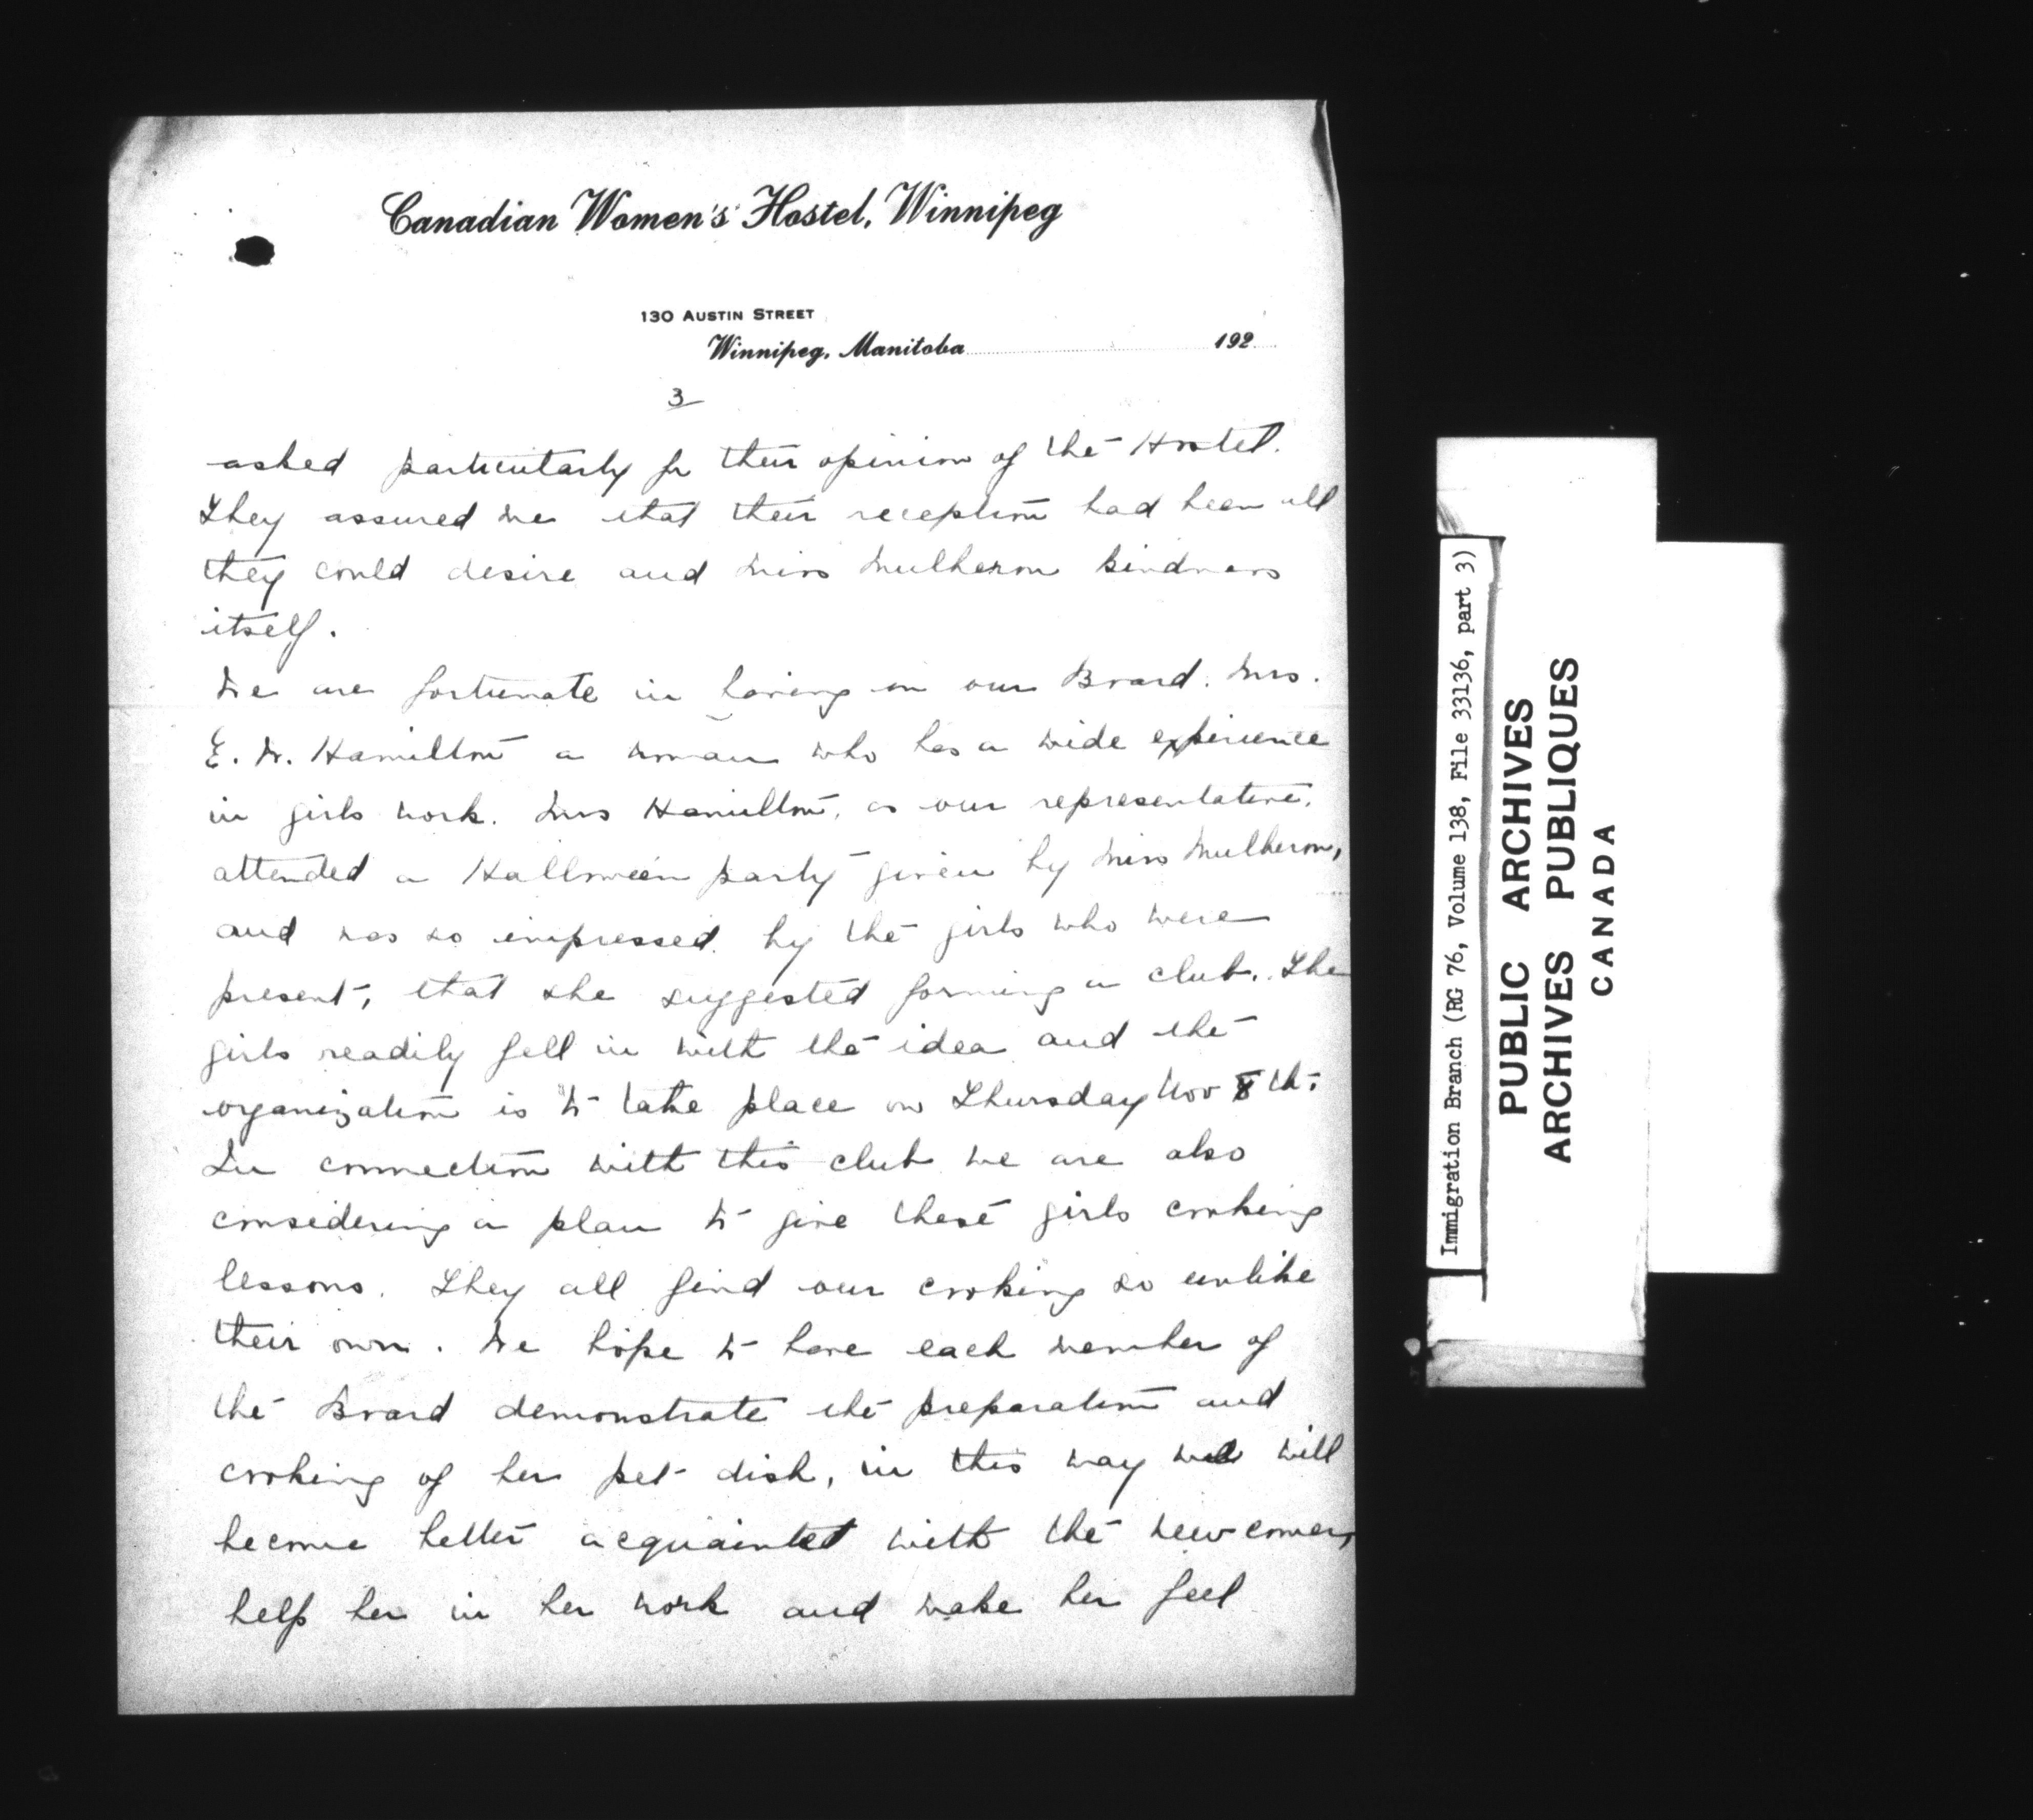 Canadian Women's Hostel, Winnipeg
130 AUSTIN STREET
Winnipeg, Manitoba 192
3
asked particularly for their opinion of the Hostel.
They assured me that their reception had been all
they could desire and Miss Mulheron kindness
itself.
We are fortunate in having on our Board. Mrs.
E. W. Hamilton a woman who has a wide experience
in girls work. Mrs Hamilton, as our representative,
attended a Hallowe'en party given by Miss Mulheron,
and was so impressed by the girls who were
present, that she suggested forming a club. The
girls readily fell in with the idea and the
organization is to take place on Thursday Nov 8th.
In connection with this club we are also
considering a plan to give these girls cooking
lessons. They all find our cooking so unlike
their own. We hope to have each member of
the Board demonstrate the preparation and
cooking of her pet dish, in this way we will
become better acquainted with the newcomer,
help her in her work and make her feel
Immigration Branch (RG 76, Volume 138, File 33136, part 3)
PUBLIC ARCHIVES
ARCHIVES PUBLIQUES
CANADA